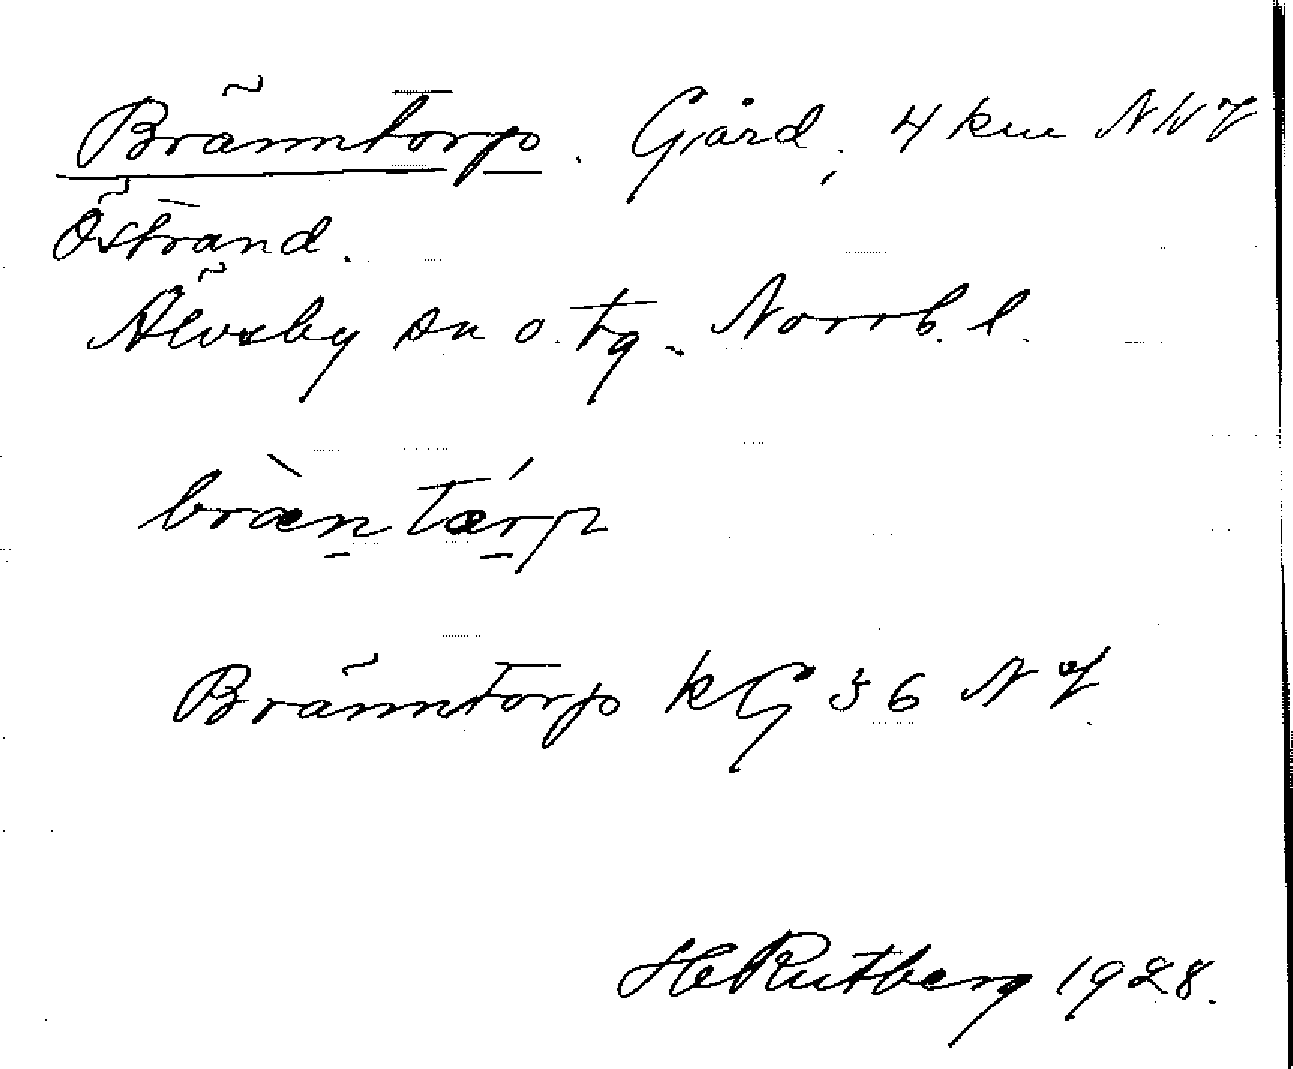 Bränntorp. Gård, 4 km NV
Östrand.
Älvsby sn o. tg. Norrb. l.
bræ̀n tǽrp
Bränntorp kG 36
HRutberg 1928.